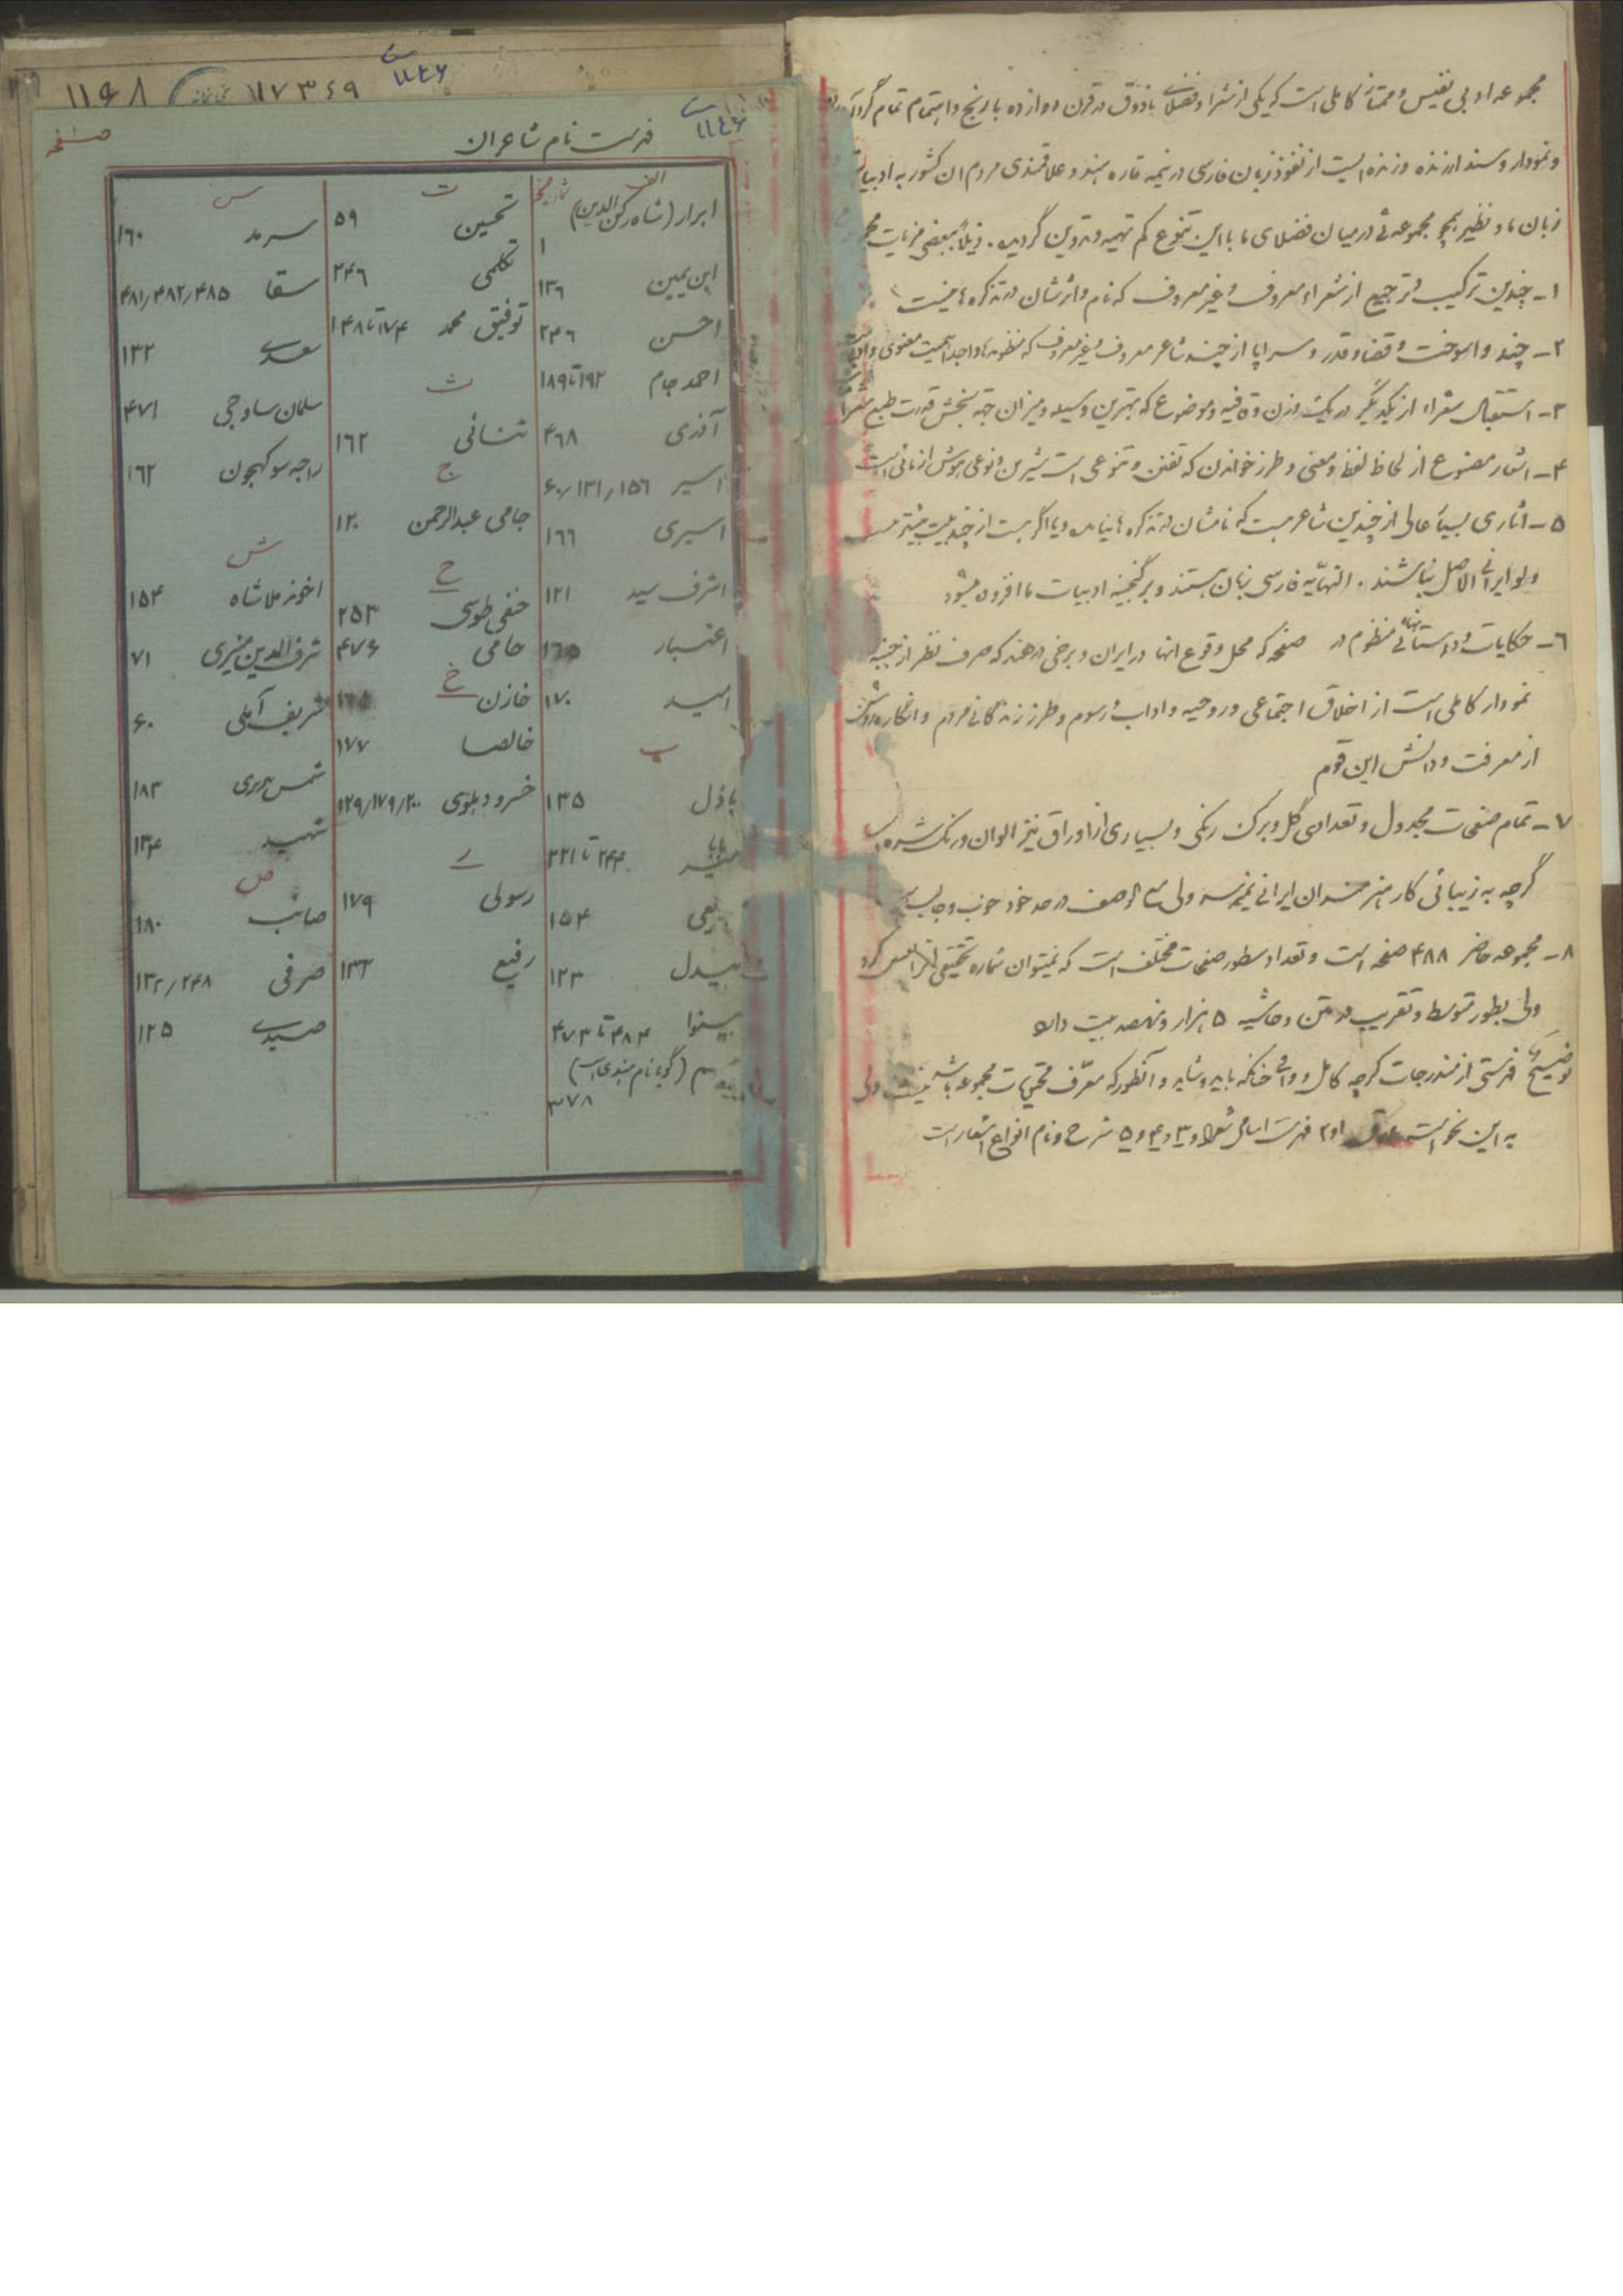 مجموعه ادبی نفیس و ممتاز کاملی است که یکی از شعرا و فضلای باذوق در قرن دوازده با رنج و اهتمام تمام گرد
و نمودار و سند ارزنده و زنده ایست از نفوذ زبان فارسی در نیمه قاره هند و علاقمندی مردم ان کشور به ادبیات
زبان ما و نظیر همچو مجموعه ئی در میان فضلای ما با این تنوع کم تهیه و تدوین گردیده. ذیلاً ببعضی مزیات
۱- چندین ترکیب و ترجیع از شعراء معروف و غیر معروف که نام و اثرشان در تذکره ها نیست
۲- چند واسوخت و قضا و قدر و سراپا از چند شاعر معروف و غیر معروف که منظومه ها واجد اهمیت معنوی و
۳- استقبال شعراء از یکدیگر در یک وزن و قافیه و موضوع که بهترین وسیله و میزان جهة سنجش قدرت طبع شعرا
۴- اشعار مصنوع از لحاظ لفظ و معنی و طرز خواندن که تفنن و تنوعی است شیرین و نوعی هوش ازمائی است
۵- اثاری بسیار عالی از چندین شاعر هست که نامشان در تذکره ها نیامده و یا اگر هست از چند بیت بیشتر نیست
ولو ایرانی الاصل نباشند. النهایه فارسی زبان هستند و بر گنجینه ادبیات ما افزوده میشود
٦- حکایات و داستانهائی منظوم در صفحه که محل وقوع انها در ایران و برخی در هند که صرف نظر از جنبه
نمودار کاملی است از اخلاق اجتماعی و روحیه و اداب و رسوم و طرز زندگانی مردم و انگاره روشن
از معرفت و دانش این قوم
۷- تمام صفحات مجدول و تعدادی گل و برگ رنگی و بسیاری از اوراق نیز الوان و رنگ شده
گرچه به زیبائی کار هنرمندان ایرانی نمیرسد ولی مع الوصف در حد خود خوب و جالب
۸- مجموعه حاضر ۴۸۸ صفحه است و تعداد سطور صفحات مختلف است که نمیتوان شماره تحقیقی انرا معین کرد
ولی بطور متوسط و تقریب در متن و حاشیه ۵ هزار و نهصد بیت دارد
توضیح فهرستی از مندرجات گرچه کامل و وافی چنانکه باید و شاید و آنطور که معرّف محتویات مجموعه باشد نیست ولی
به این نحو است ۱ و ۲ فهرست اسامی شعرا و ۳ و ۴ و ۵ شرح و نام انواع اشعار است
۱۱۴۸ ۱۷۳۶۹
فهرست نام شاعران
صفحه
الف
ابرار (شاه رکن الدین) ۱
ابن یمین ۱۳٦
احسن ۲۴٦
احمد جام ۱۹۲ تا ۱۸۹
آذری ۴٦۸
اسیر ۱۵٦/۱۳۱/۶۰
اسیری ۱٦٦
اشرف سید ۱۲۱
اعتبار ۱٦۵
امید ۱۷۰
ب
باذل ۱۳۵
بابا ۲۴۴ تا ۲۲۱
۱۵۴
بیدل ۱۲۳
بینوا ۴۸۴ تا ۴۷۳
(گویا نام هندی است) ۳۷۸
ت
تحسین ۵۹
تکلمی ۲۴٦
توفیق محمد ۱۷۴ تا ۱۴۸
ث
ثنائی ۱٦۲
ج
جامی عبدالرحمن ۱۲۰
ح
حنفی طوسی ۲۵۳
حامی ۴۷۶
خ
خازن
خالصا ۱۷۷
خسرو دهلوی ۲۰۰/۱۷۹/۱۲۹
ر
رسولی ۱۷۹
رفیع ۱۳۳
س
سرمد ۱٦۰
سقا ۴۸۵/۴۸۲/۴۸۱
سعدی ۱۳۲
سلمان ساوجی ۴۷۱
راجه سوکهجون ۱٦۲
ش
اخوند ملا شاه ۱۵۴
شرف الدین منیری ۷۱
شریف آملی ۶۰
۱۸۳
شهید ۱۳۴
ص
صائب ۱۸۰
صرفی ۲۴۸/۱۳۲
صیدی ۱۲۵